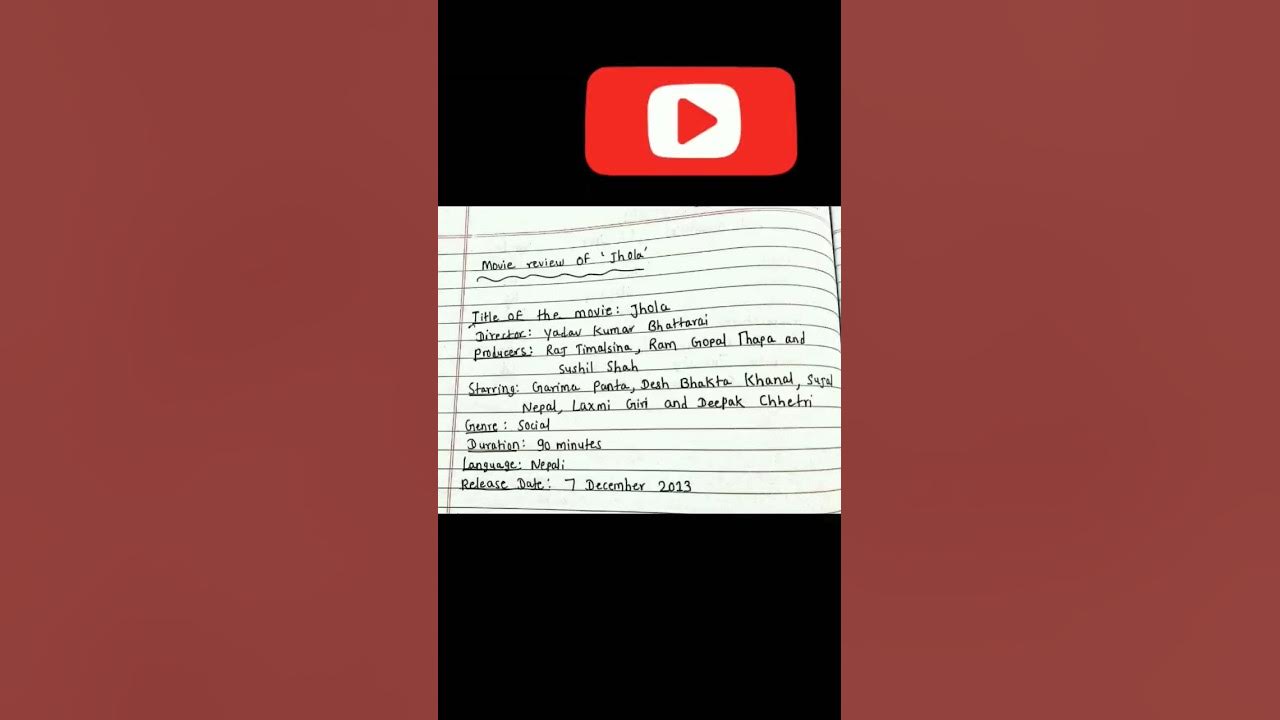 Movie review of 'Jhola'
Title of the movie: Jhola
Director: Yadav Kumar Bhattarai
Producers: Raj Timalsina, Ram Gopal Thapa and
Sushil Shah
Starring: Garima Panta, Desh Bhakta Khanal, Sujal
Nepal, Laxmi Giri and Deepak Chhetri
Genre: Social
Duration: 90 minutes
Language: Nepali
Release Date: 7 December 2013